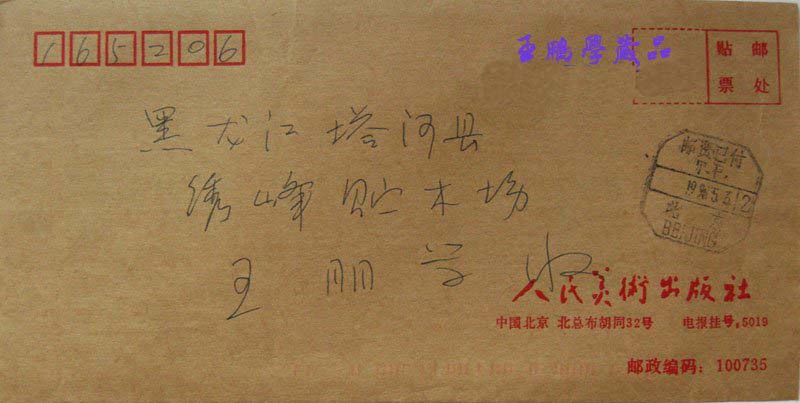 165206
王鹏學藏品
贴邮
票处
黑龙江塔河县
绣峰贮木场
王鹏学收
邮资已付
T.P.
北京
BEIJING
人民美術出版社
中国北京 北总布胡同32号 电报挂号:5019
邮政编码:100735